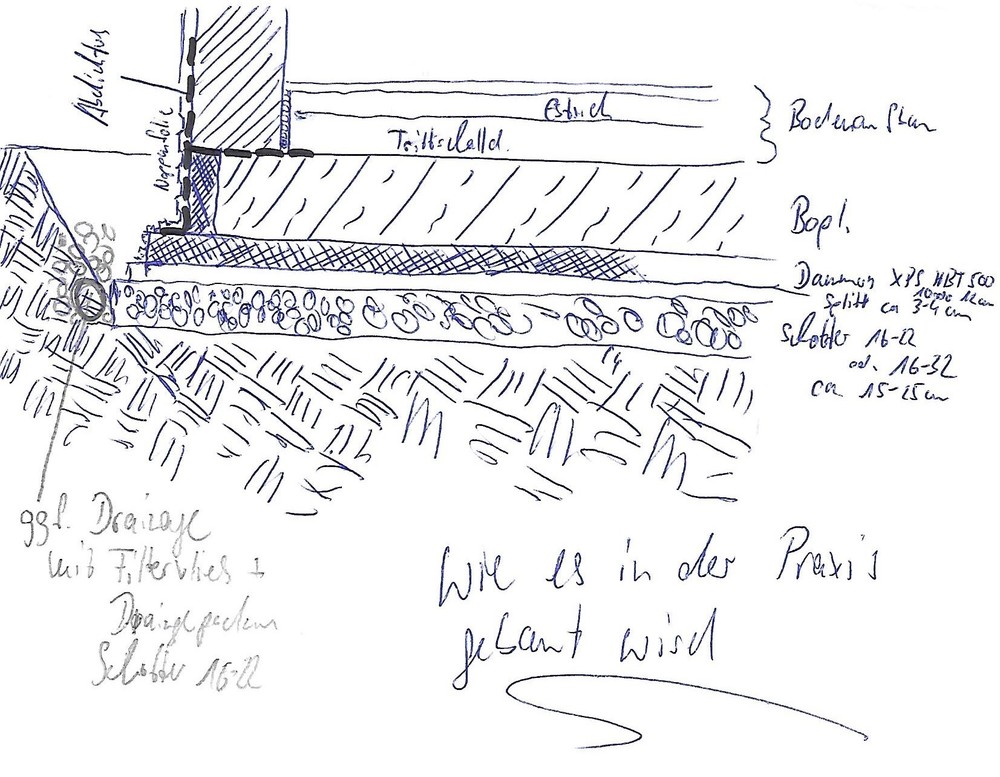 Abdichtung
Noppenfolie
Estrich
Trittschalld.
Bodenaufbau
Bopl.
Dämmung XPS WBT 500
10 oder 12cm
Splitt ca 3-4 cm
Schotter 16-22
od. 16-32
ca 15-25cm
ggf. Drainage
mit Filtervlies +
Drainagepackung
Schotter 16-22
Wie es in der Praxis
gebaut wird